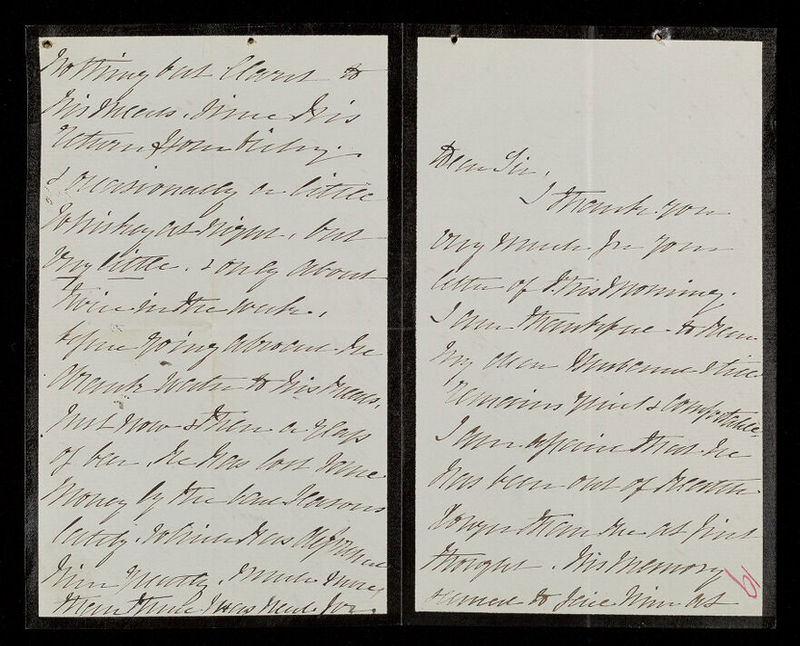 Dear Sir,
I thank you
very much for your
letter of this morning.
I am thankful to hear
my dear Husband still
Remains quiet & comfortable.
I am afraid that he
has been out of health
longer than we at first
thought. His Memory
seemed to fail him at
61
Nothing but Claret to
his Meals, since his
return from Sicily.
& occasionally a little
Whiskey at Night, but
very little, & only about
twice in the week,
before going abroad he
drank water to his Meals,
Just now & then a glass
of beer. He has lost some
Money by the bad Seasons
lately, which has depressed
him greatly, much more
than there was need for,